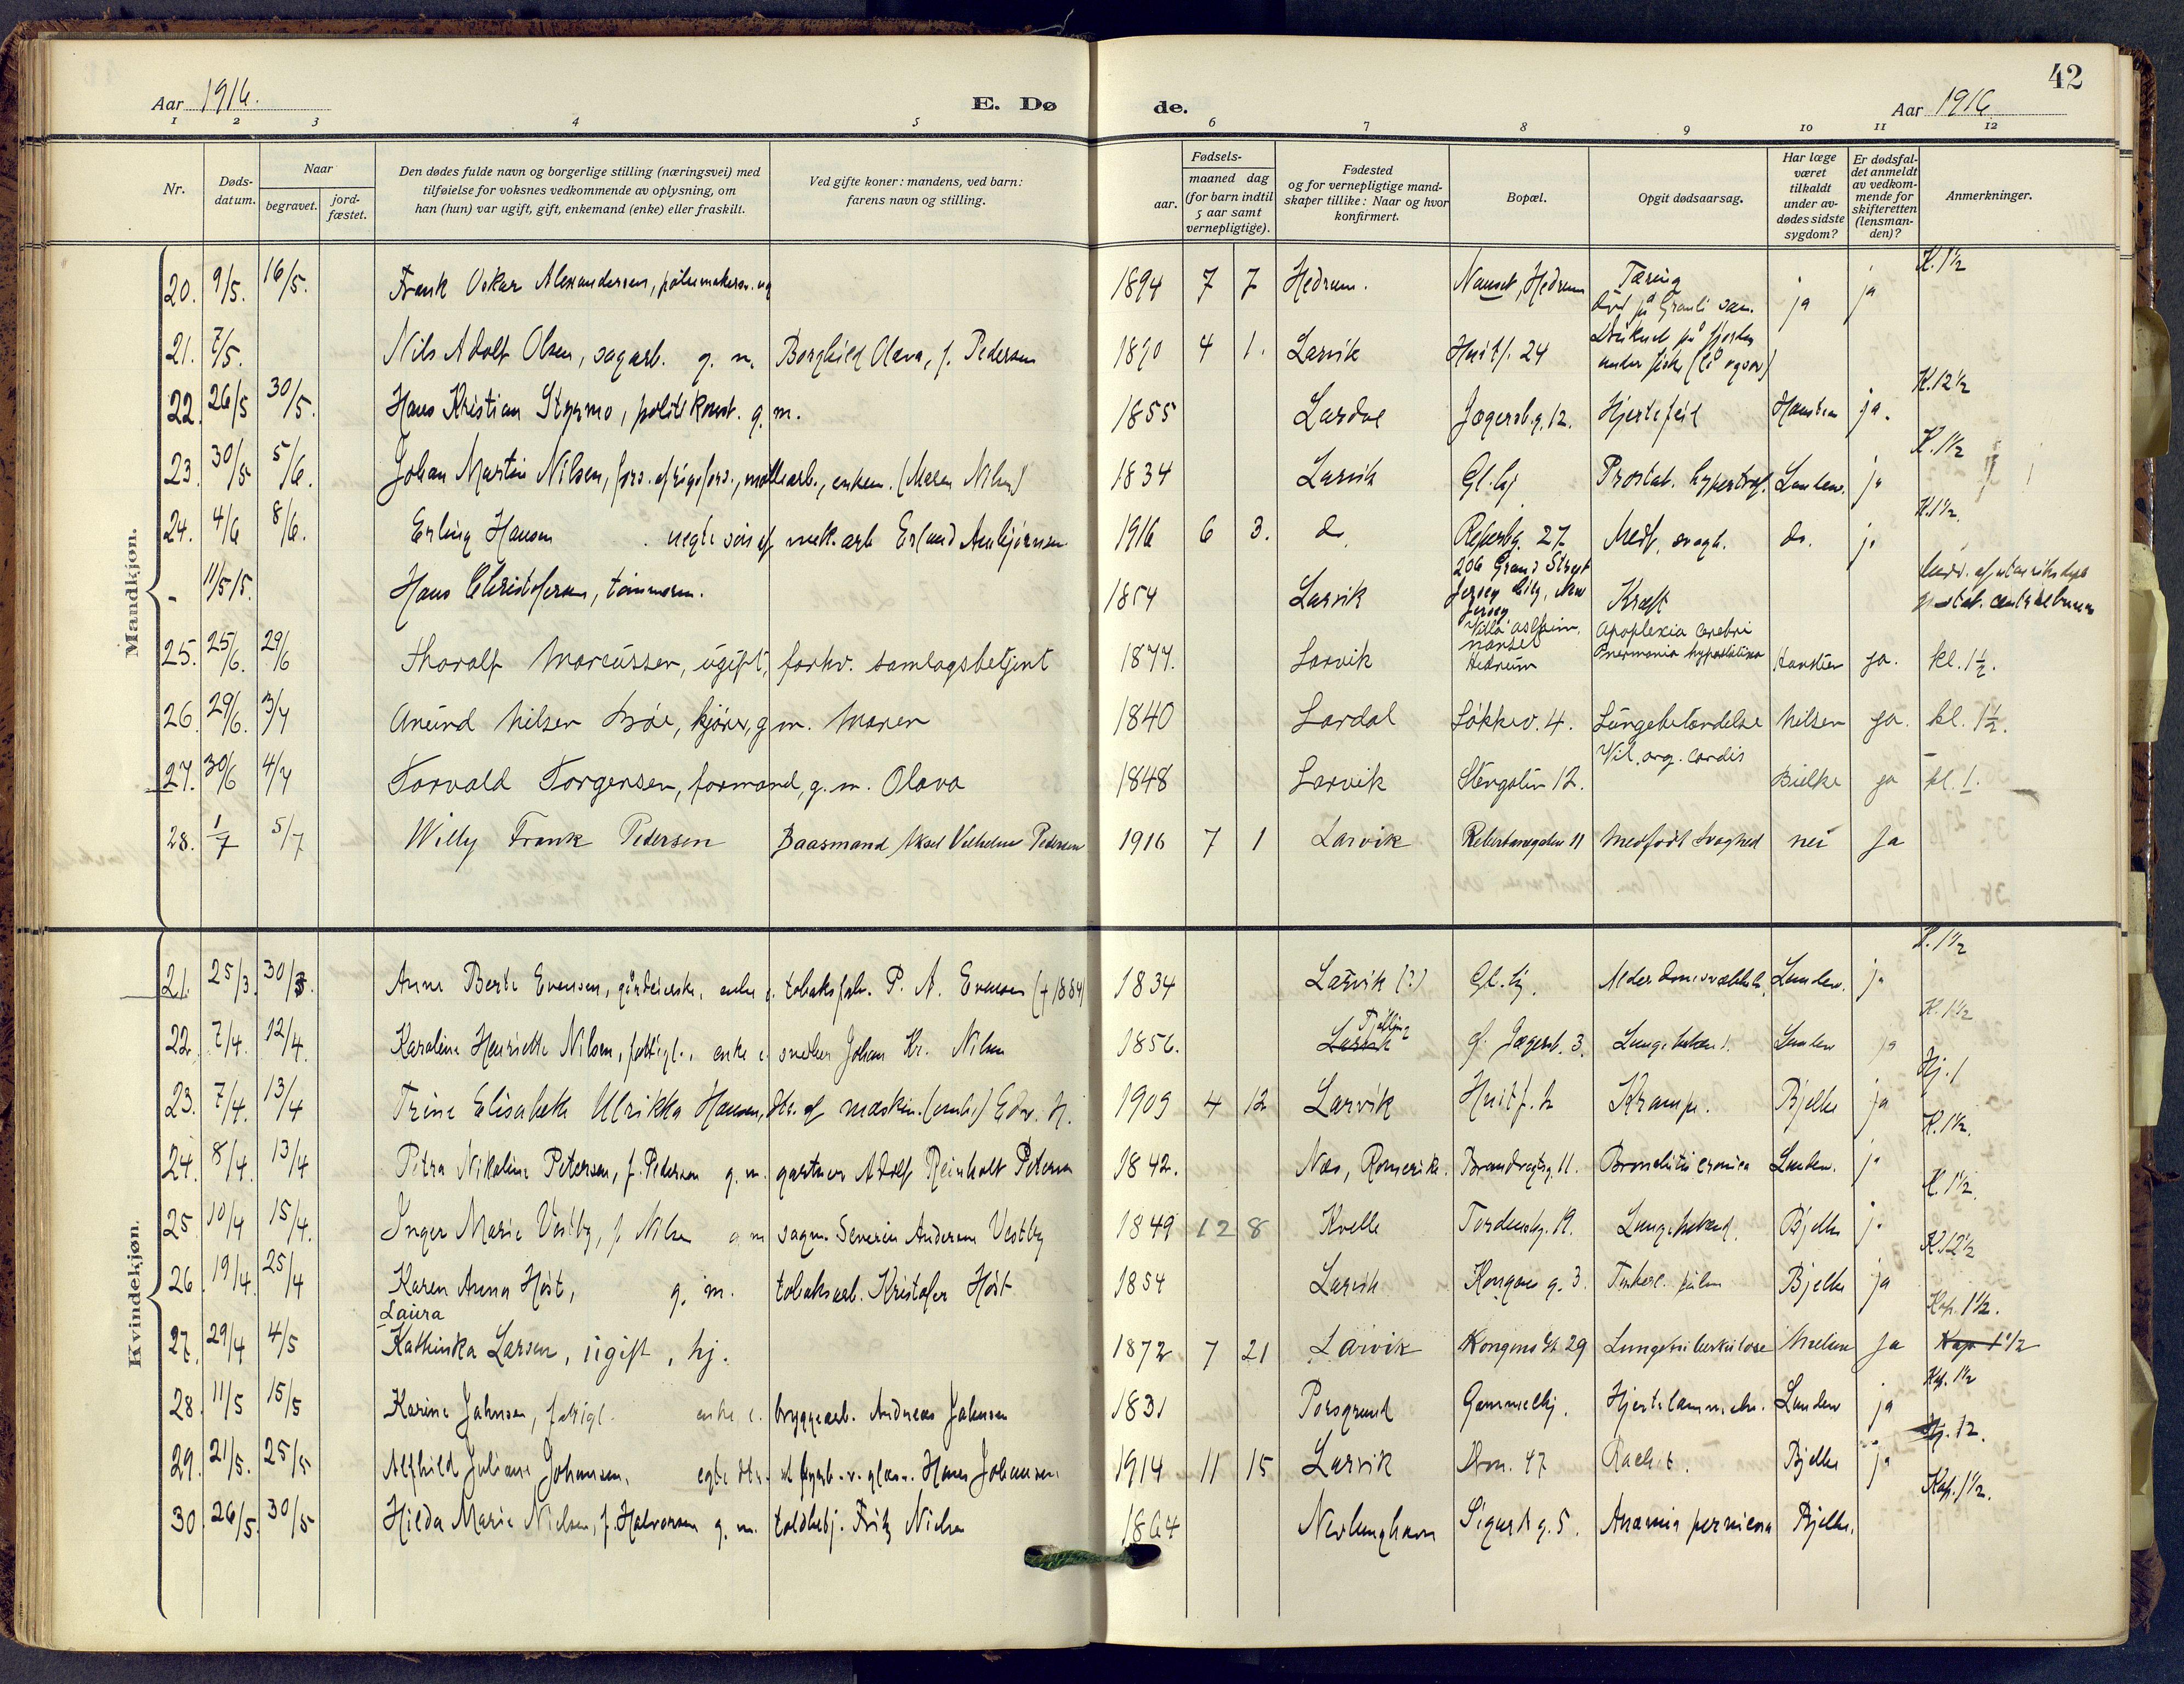 42
Aar 1916. E. Døde. Aar 1916
1 2 3 4 5 6 7 8 9 10 11 12
Nr.
Døds-
datum.
Naar
begravet.
jord-
fæstet.
Den dødes fulde navn og borgerlige stilling (næringsvei) med
tilføielse for voksnes vedkommende av oplysning, om
han (hun) var ugift, gift, enkemand (enke) eller fraskilt.
Ved gifte koner: mandens, ved barn:
farens navn og stilling.
Fødsels-
aar.
maaned dag
(for barn indtil
5 aar samt
vernepligtige).
Fødested
og for vernepligtige mand-
skaper tillike: Naar og hvor
konfirmert.
Bopæl.
Opgit dødsaarsag.
Har læge
været
tilkaldt
under av-
dødes sidste
sygdom?
Er dødsfal-
det anmeldt
av vedkom-
mende for
skifteretten
(lensman-
den)?
Anmerkninger.
Mandkjøn.
20. 9/5. 16/5. Frank Oskar Alexandersen, 1894 7 7 Hedrum. Nanset, Hedrum Tæring ja ja K. 1 1/2
21. 7/5. Nils Adolf Olsen, sagarb. g. m. Borghild Olava, f. Pedersen 1890 4 1. Larvik Huitf. 24 Druknet på fjorden
under fiske
22. 26/5 30/5. Hans Kristian Styrmo, politikonst. g. m. 1855 Lardal Jægersb.g. 12. Hjertefeil Hansteen ja. K. 12 1/2
23. 30/5 5/6. Johan Martin Nilsen, enkem. (Maren Nilsen) 1834 Larvik Gl.hj Prostat. hypertrof. Lunden. ja K. 1 1/2
24. 4/6 8/6. Erling Hansen uegte søn af mek. arb Erland 1916 6 3. do. Reperbg. 27 Medf. svagh. do. ja K. 1 1/2.
- 11/5 15. Hans Christofersen, tømmerm. 1854 Larvik 206 Grand Street
Jersey City, New
Jersey Kræft
25. 25/6. 29/6 Thoralf Marcussen, ugift, forhv. samlagsbetjent 1877. Larvik Villa Aslheim,
Nanset
Hedrum Apoplexia cerebri
Pneumonia hypostatica Hansteen ja. kl. 1 1/2.
26. 29/6. 3/7 Anund Nilsen Bøe, kjører, g. m. Maren 1840 Lardal Løkkev. 4. Lungebetændelse Nilsen ja. kl. 1 1/2.
27. 30/6 4/7 Torvald Torgersen, formand, g. m. Olava 1848 Larvik Stengaten 12. Vit. org. cordis Bielke ja kl. 1.
28. 1/7 5/7 Willy Frank Pedersen Baasmand Aksel Vilhelm Pedersen 1916 7 1 Larvik Reberbanegaten 11 Medfødt svaghed nei Ja
Kvindekjøn.
21. 25/3. 30/3. Anne Berte Evensen, gårdeierske, enke e. tobaksfabr. P. A. Evensen († 1884) 1834 Larvik (?) Gl. hj. Alderdomssvækkelse Lunden. ja K. 1 1/2
22. 7/4. 12/4. Karoline Henriette Nilsen, fattigl., enke e. snekker Johan Kr. Nilsen 1856. Larvik Tjølling? Jægersb. 3. Lungebetænd. Lunden ja K. 1 1/2
23. 7/4. 13/4 Trine Elisabeth Ulrikka Hansen, dtr. af maskin. Edv. H. 1909 4 12 Larvik Huitf. Krampe. Bjelke ja Hj. 1
24. 8/4. 13/4 Petra Nikoline Petersen, f. Pedersen g. m. gartner Adolf Reinholt Petersen 1842. Næs, Romerike. Brandvagtsg. 11. Bronchitis cronica Lunden. ja K. 1 1/2.
25. 10/4 15/4. Inger Marie Vestby, f. Nilsen g m sagm. Severin Andersen Vestby 1849 12 8 Kvelle Tordensg. 19. Lungebetænd. Bjelke ja K. 1 1/2.
26 19/4. 25/4 Karen Anna Høst, g. m. tobaksarb. Kristofer Høst 1854 Larvik Kongens g. 3. Bjelke ja K. 12 1/2
27. 29/4 4/5 Laura
Kathinka Larsen, ugift, hj. 1872 7 21 Larvik Kongens gt 29 Lungetuberkulose Nielsen ja Kap. 1 1/2.
Kap 1 1/2
28. 11/5 15/5 Karine Jahnsen, enke e. bryggearb. Andreas Jahnsen 1831 Porsgrund Gammelhj. Hjertelammelse. Lunden ja Kap. 1 1/2
29. 21/5. 25/5 Alfhild Juliane Johansen, egte dtr. Hans Johansen. 1914 11 15 Larvik Dron. 47 Rachit. Bjelke ja Hj. 12.
30. 26/5. 30/5 Hilda Marie Nielsen, f. Halvorsen g. m. toldbetj. Fritz Nielsen 1864 Nevlunghavn Sigurds g. 5. Anæmia perniciosa Bjelke. Kap. 1 1/2.